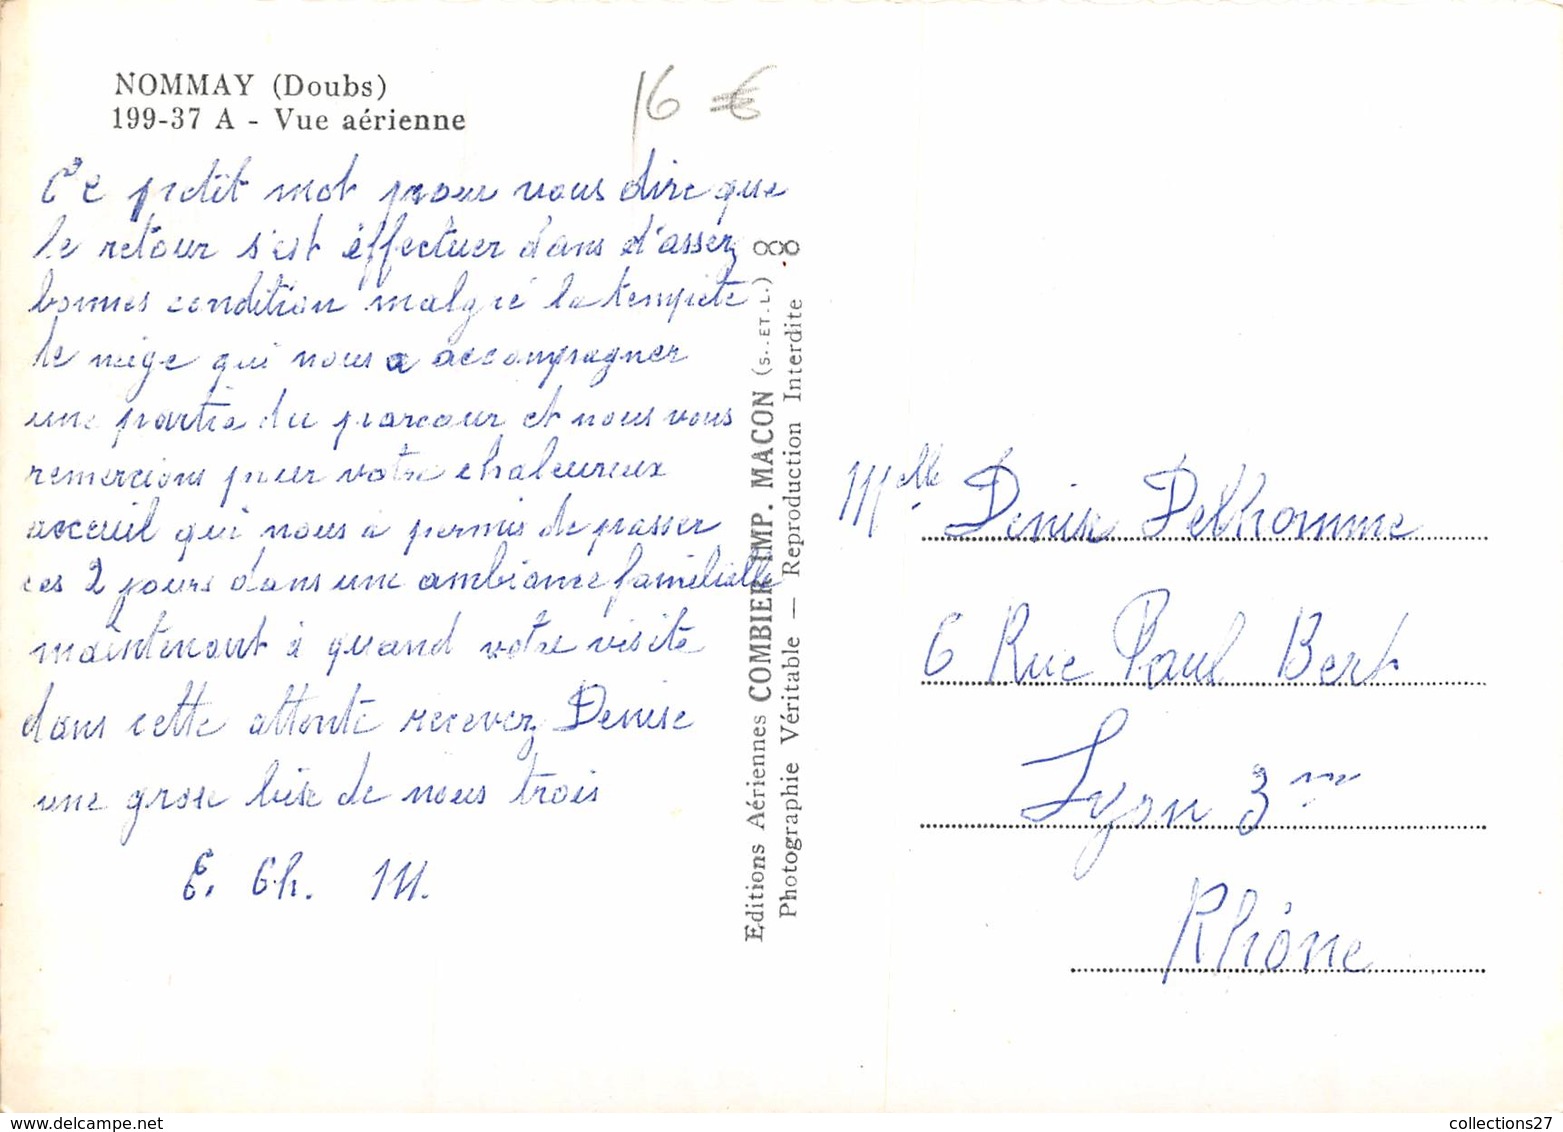 NOMMAY (Doubs)
199-37 A - Vue aérienne
16 €
Ce petit mot pour vous dire que
le retour s'est éffectuer dans d'assez
bonnes condition malgré la tempête
de neige qui nous a accompagner
une partie du parcour et nous vous
remercions pour votre chaleureux
acceuil qui nous a permis de passer
ces 2 jours dans une ambiance familialle
maintenant à quand votre visite
dans cette attente recevez Denise
une grose bise de nous trois
E. Ch. M.
Editions Aériennes COMBIER IMP. MACON (S.-ET-L.)
Photographie Véritable — Reproduction Interdite
Melle Denise Delhomme
6 Rue Paul Bert
Lyon 3me
Rhône
collections27